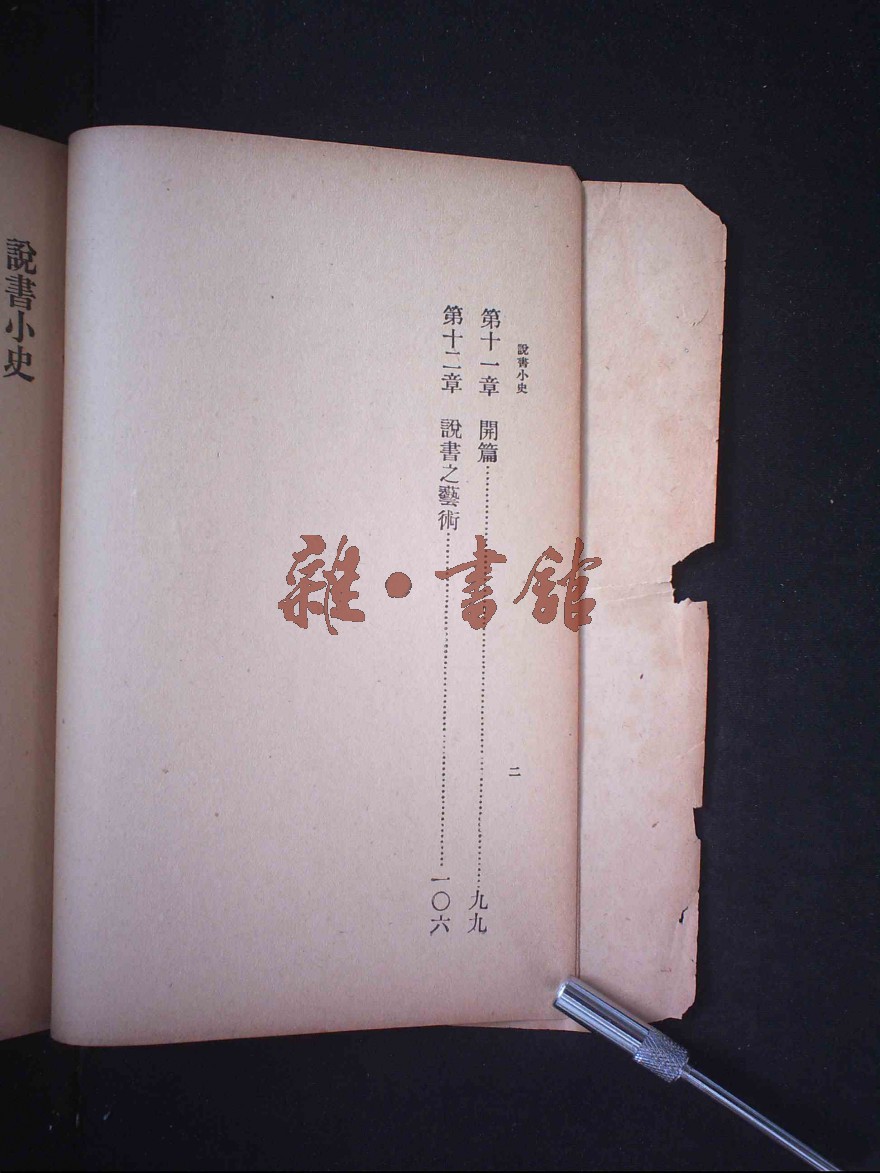 說書小史
第十一章 開篇……九九
第十二章 說書之藝術……一〇六
二
說書小史
雜·書館